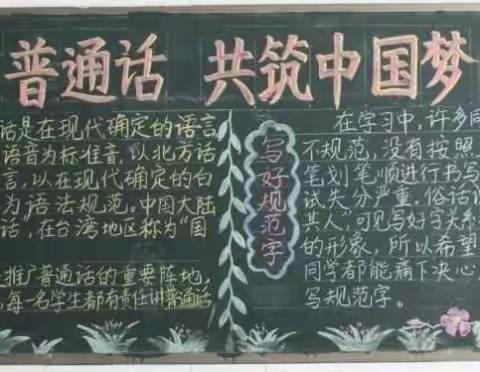 普通话 共筑中国梦
话是在现代确定的语言
语音为标准音,以北方话
言,以在现代确定的白
为语法规范。中国大陆
话,在台湾地区称为“国
推广普通话的重要阵地,
每一名学生都有责任讲普通话
写好规范字
在学习中,许多同
不规范,没有按照
笔划笔顺进行书写
试失分严重。俗话
共人”,可见写好字关系
的形象,所以希望
同学都能痛下决心,
写规范字。